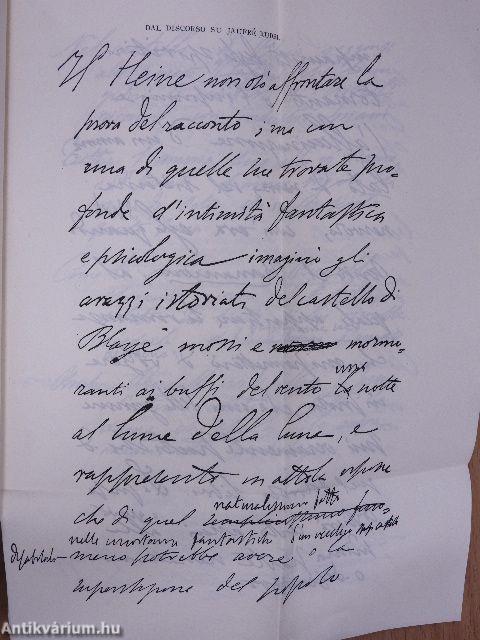 DAL DISCORSO SU JAUFRÉ RUDEL
Il Heine non osò affrontare la
prova del racconto ; ma con
una di quelle sue trovate pro-
fonde d'intimità fantastica
e psicologica imaginò gli
arazzi istoriati del castello di
Blaye mossi e mormo-
ranti ai buffi del vento una notte
al lume della luna, e
rappresentò in atto la
che di quel naturalissimo fatto
nelle fantastiche d'un vecchio
meno potrebbe avere o la
superstizione del popolo
Antikvárium.hu